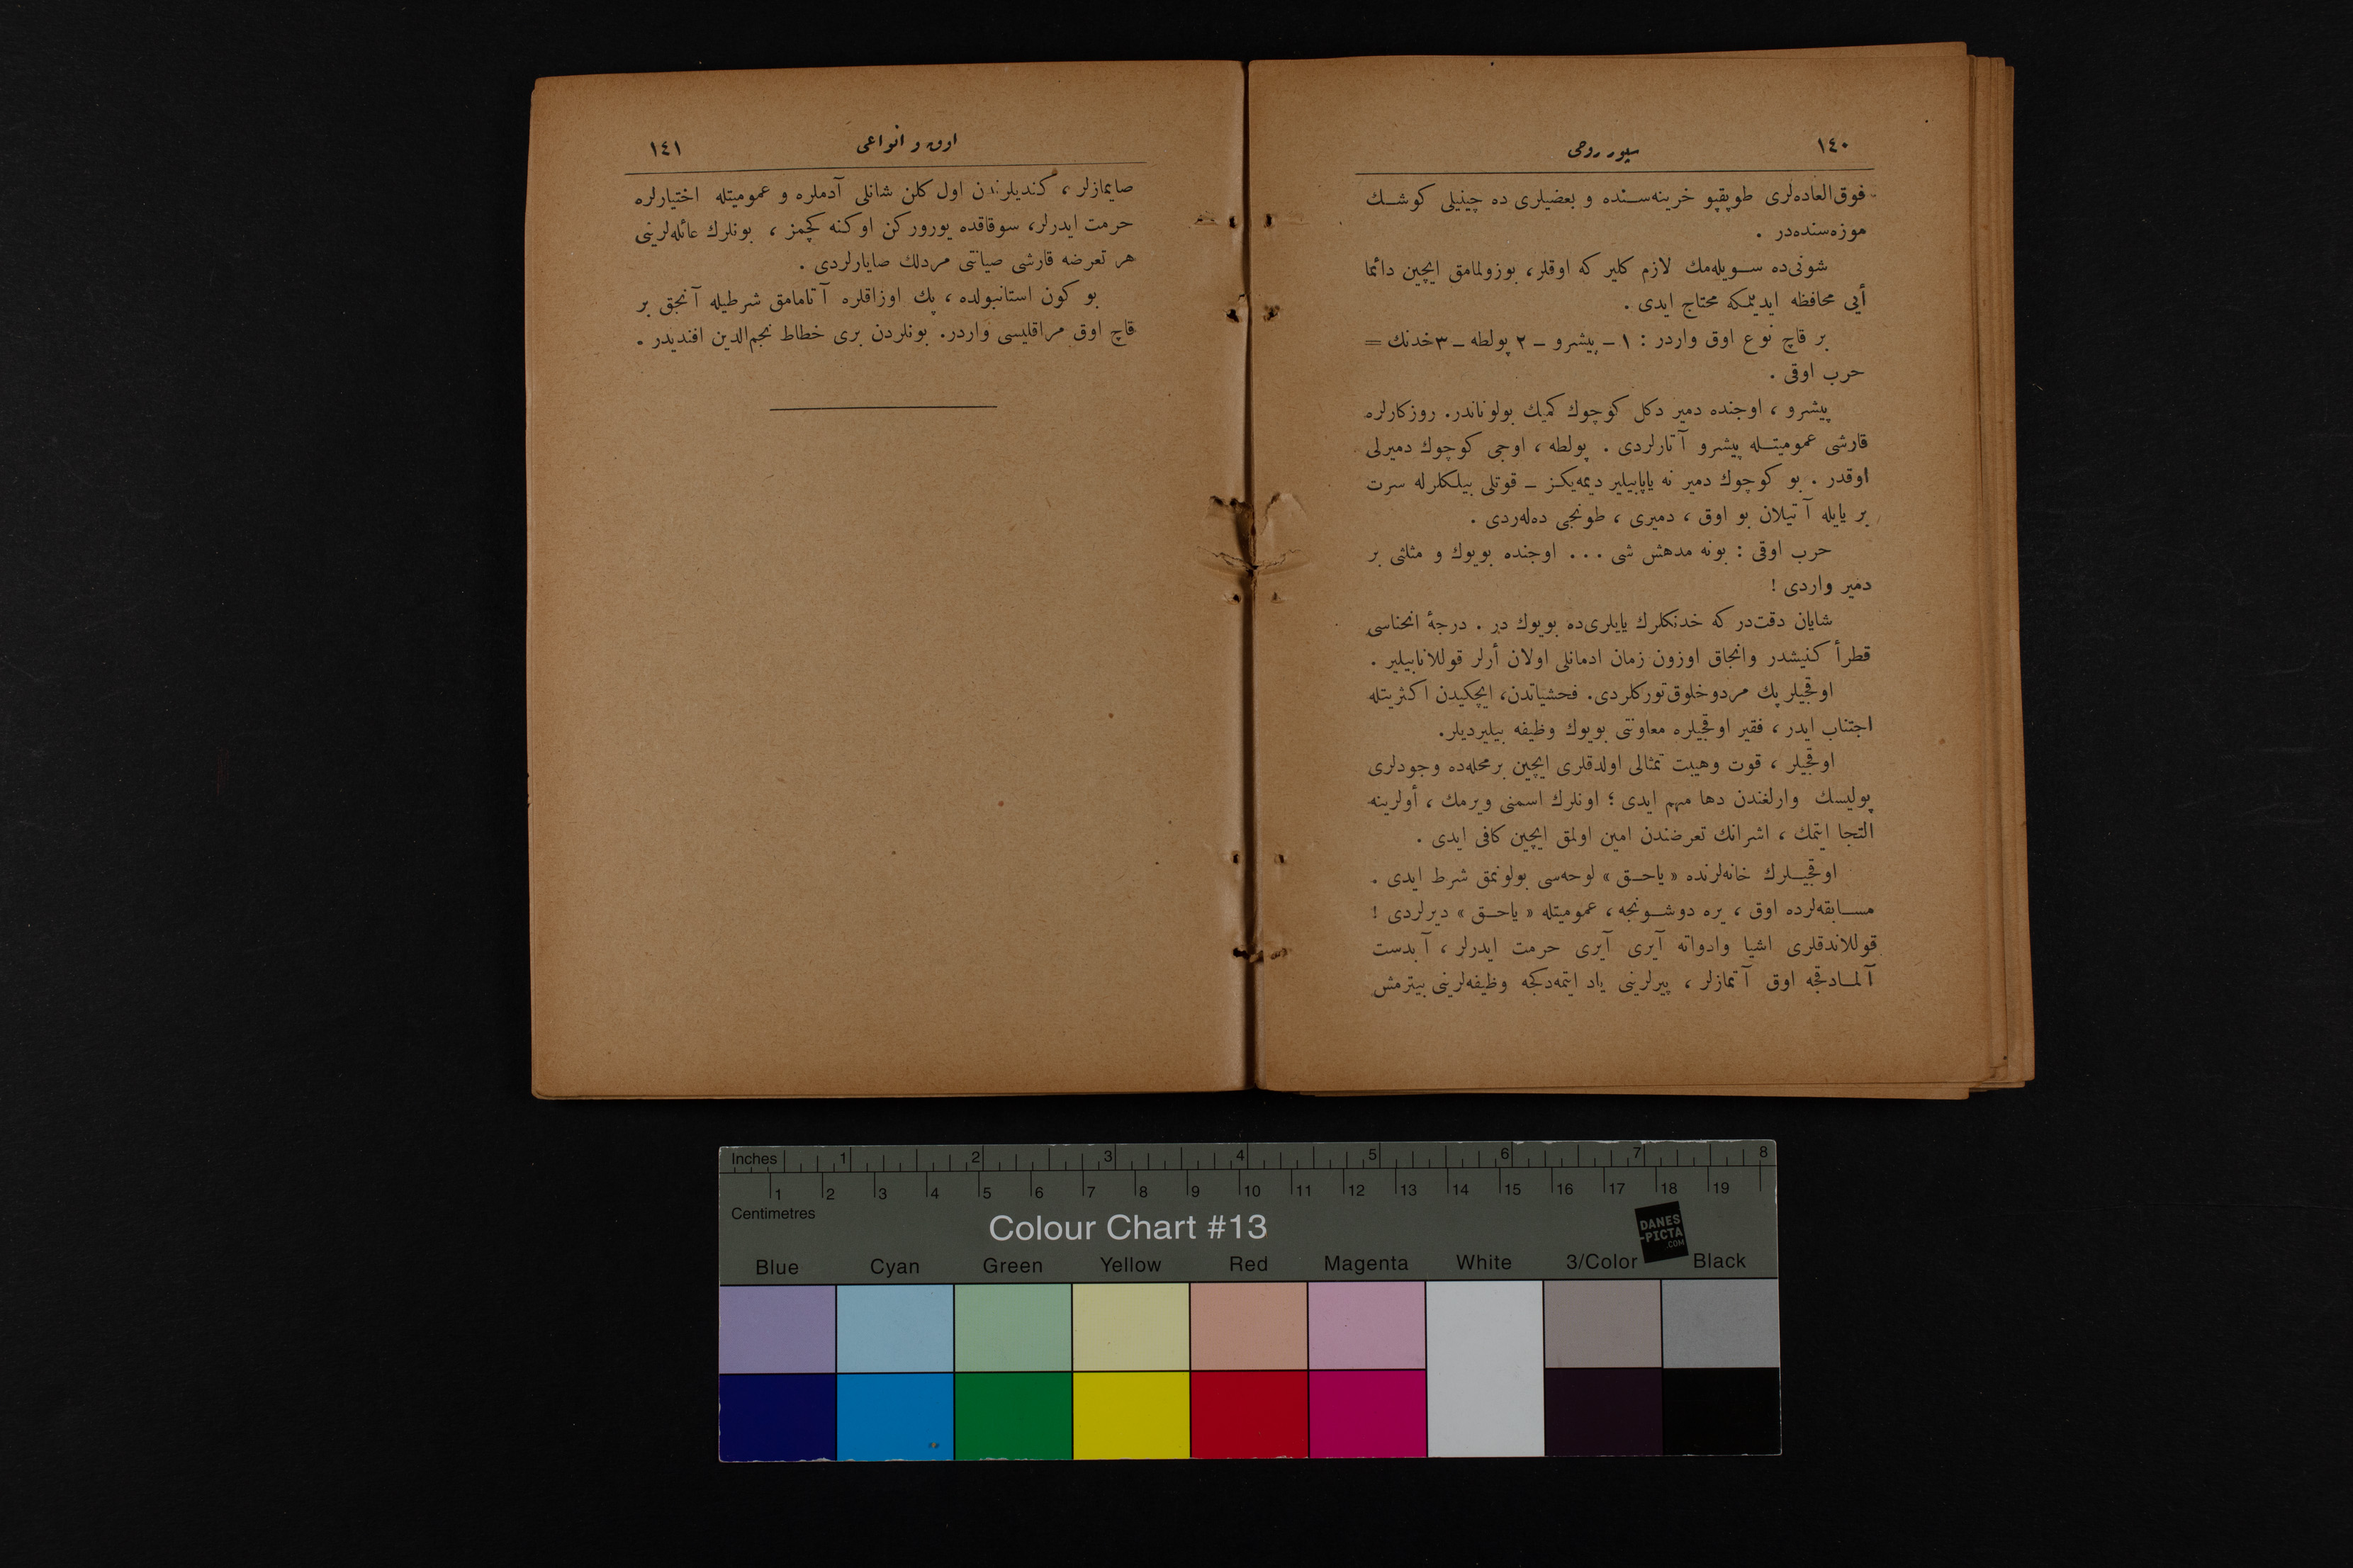 ١٤٠
سپور روحی
فوق‌العاده‌لری طوپقپو خزینه‌سنده و بعضیلری ده چینیلی كوشك
موزه‌سنده‌در .
شونی‌ده سویله‌مك لازم كلیر كه اوقلر، بوزولمامق ایچین دائما
أیی محافظه ایدیلمكه محتاج ایدی .
بر قاچ نوع اوق واردر : ١ ــ پیشرو ــ ٢ پولطه ــ ٣ خدنك =
حرب اوقی .
پیشرو ، اوجنده دمیر دكل كوچوك كمیك بولوناندر. روزكارلره
قارشی عمومیتله پیشرو آتارلردی . پولطه ، اوجی كوچوك دمیرلی
اوقدر . بو كوچوك دمیر نه یاپابیلیر دیمه‌یكز ــ قوتلی بیلكلرله سرت
بر یایله آتیلان بو اوق ، دمیری ، طونجی ده‌له‌ردی .
حرب اوقی : بونه مدهش شی ... اوجنده بویوك و مثلثی بر
دمیر واردی !
شایان دقت‌در كه خدنكلرك یایلری‌ده بویوك در . درجهٔ انحناسی
قطرأ كنیشدر وانجاق اوزون زمان ادمانلی اولان أرلر قوللانابیلیر .
اوقجیلر پك مردو خلوق‌توركلردی. فحشیاتدن، ایچكیدن اكثریتله
اجتناب ایدر ، فقیر اوقجیلره معاونتی بویوك وظیفه بیلیردیلر.
اوقجیلر ، قوت وهیبت تمثالی اولدقلری ایچین برمحله‌ده وجودلری
پولیسك وارلغندن دها مهم ایدی ؛ اونلرك اسمنی ویرمك ، أولرینه
التجا ایتمك ، اشرانك تعرضندن امین اولمق ایچین كافی ایدی .
اوقجیلرك خانه‌لرنده « یاحق » لوحه‌سی بولونمق شرط ایدی .
مسابقه‌لرده اوق ، یره دوشونجه ، عمومیتله « یاحق » دیرلردی !
قوللاندقلری اشیا وادواته آیری آیری حرمت ایدرلر ، آبدست
آلمادقجه اوق آتمازلر ، پیرلرینی یاد ایتمه‌دكجه وظیفه‌لرینی بیترمش
١٤١
اوق و انواعی
صایمازلر ، كندیلرندن اول كلن شانلی آدملره و عمومیتله اختیارلره
حرمت ایدرلر، سوقاقده یوروركن اوكنه كچمز ، بونلرك عائله‌لرینی
هر تعرضه قارشی صیانتی مردلك صایارلردی .
بو كون استانبولده ، پك اوزاقلره آتامامق شرطیله آنجق بر
قاچ اوق مراقلیسی واردر. بونلردن بری خطاط نجم‌الدین افندیدر .
Inches 1 2 3 4 5 6 7 8
1 2 3 4 5 6 7 8 9 10 11 12 13 14 15 16 17 18 19
Centimetres
Colour Chart #13
DANES
-PICTA
.COM
Blue Cyan Green Yellow Red Magenta White 3/Color Black